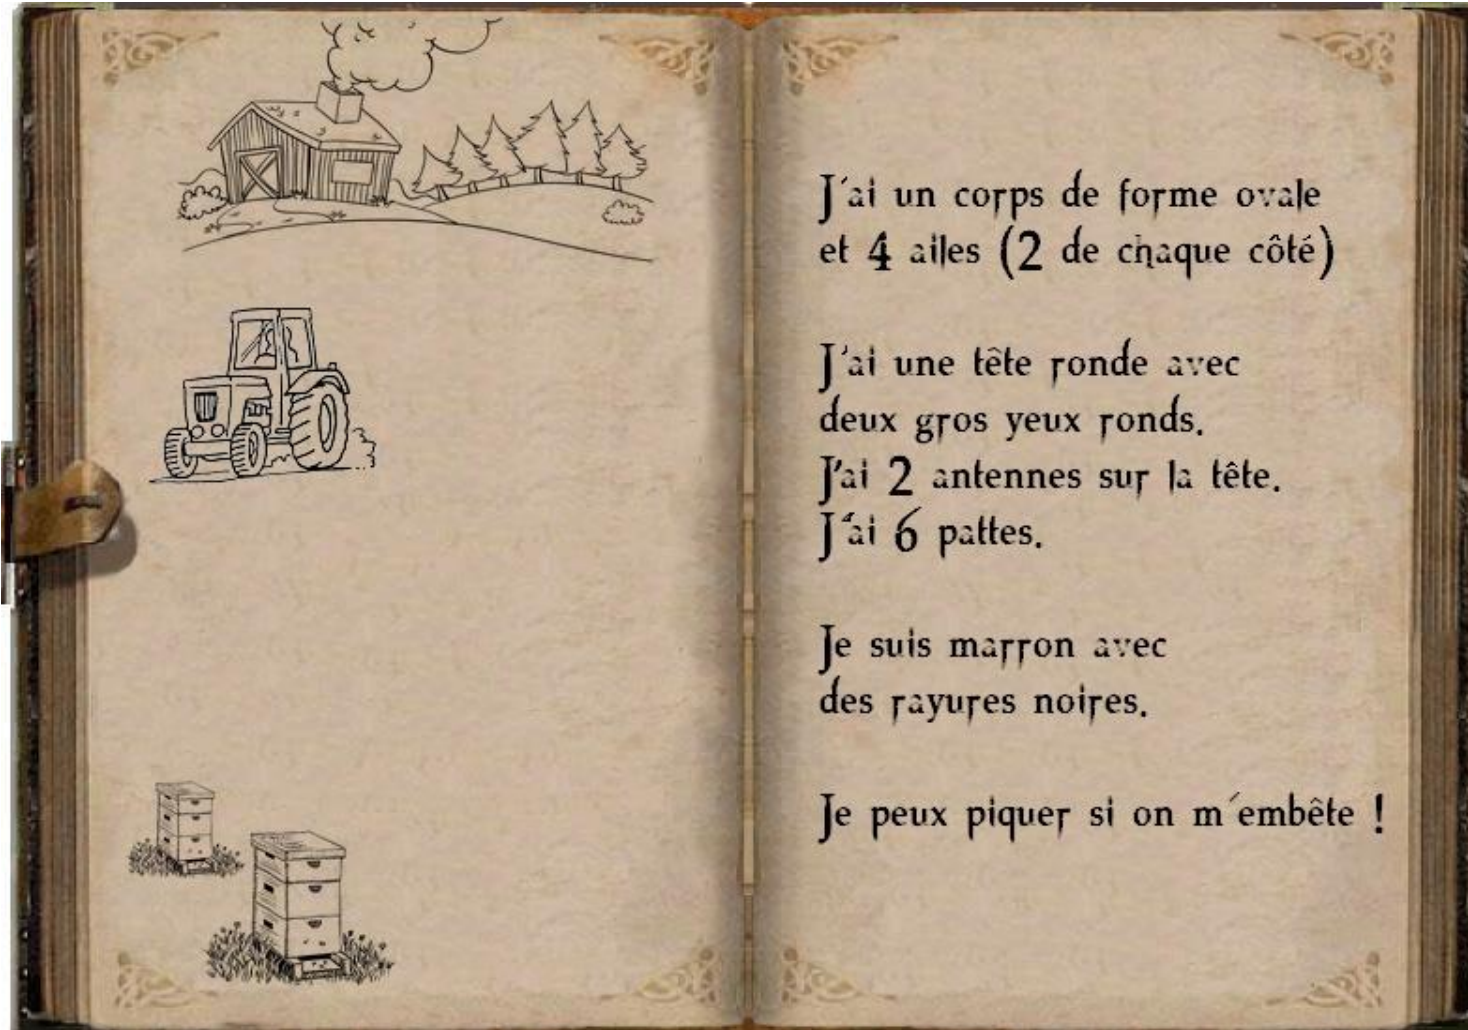 J'ai un corps de forme ovale
et 4 ailes (2 de chaque côté)
J'ai une tête ronde avec
deux gros yeux ronds.
J'ai 2 antennes sur la tête.
J'ai 6 pattes.
Je suis marron avec
des rayures noires.
Je peux piquer si on m'embête !